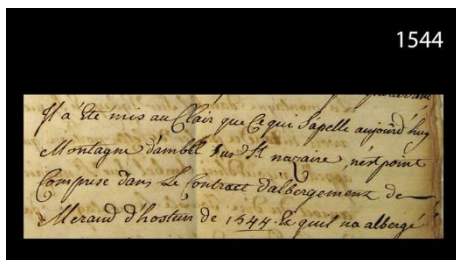 1544
Il a été mis au Clair que Ce qui S'apelle aujourd'huy
Montagne d'ambel sur St nazaire, n'est point
Comprise dans Le Contract d'albergement de
Meraud d'hostun de 1544. Et quil na albergé